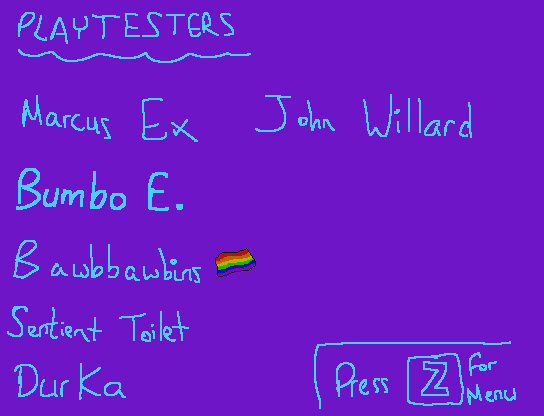 PLAYTESTERS
Marcus Ex John Willard
Bumbo E.
Bawbbawbins
Sentient Toilet
Durka
Press Z For Menu